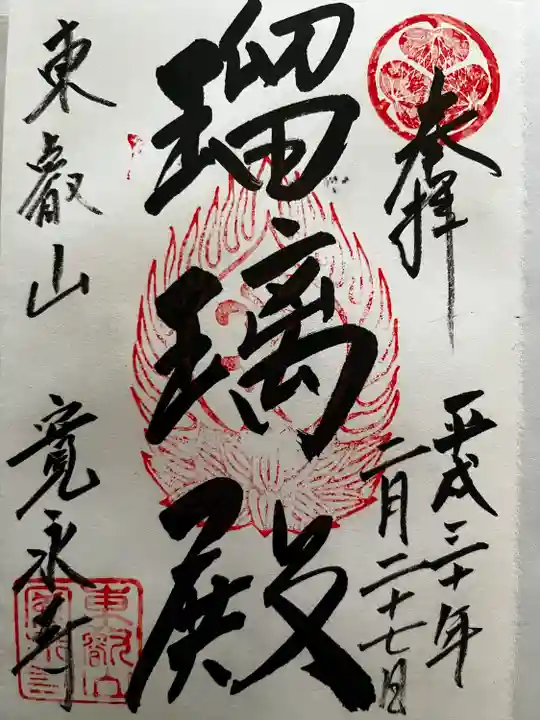 奉拝
平成三十年
二月二十七日
瑠璃殿
東叡山 寛永寺